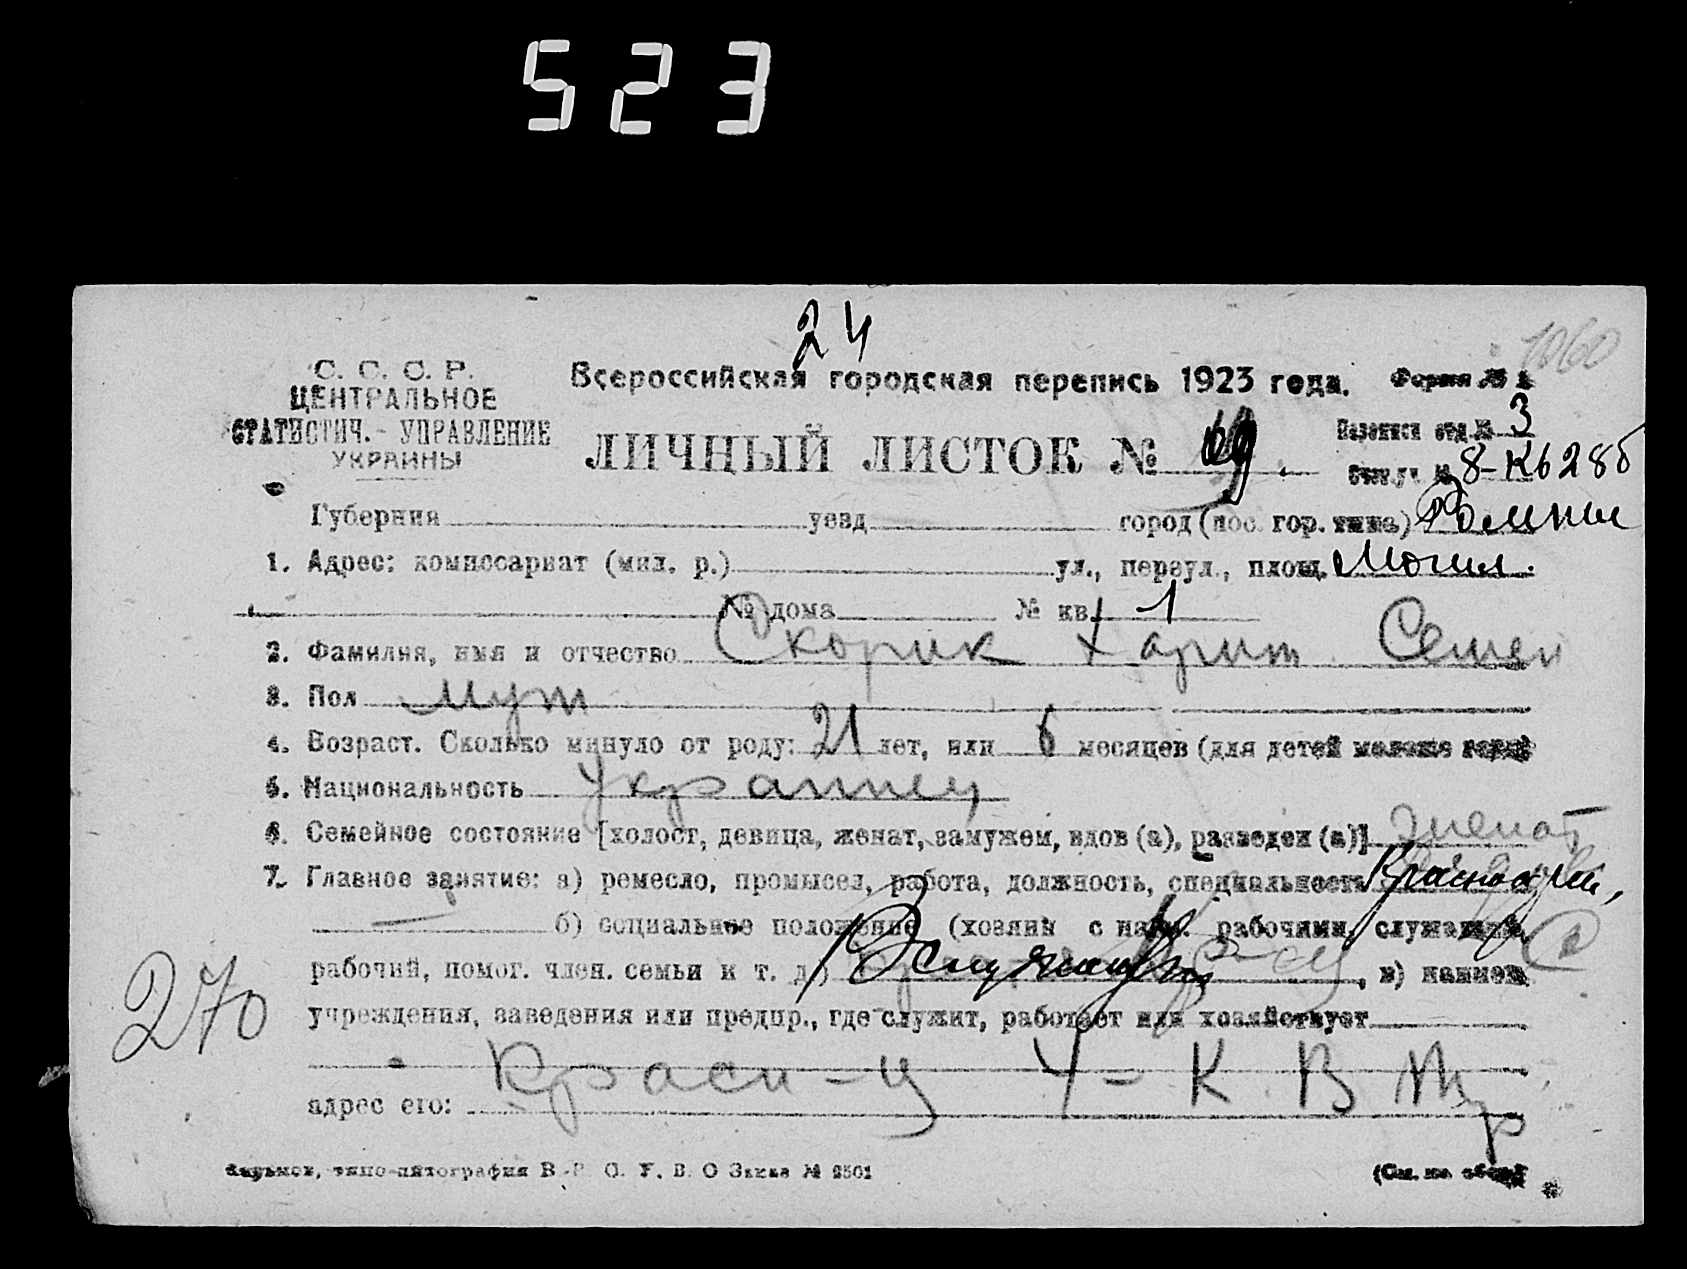 523
24
1060
С. С. С. Р.
ЦЕНТРАЛЬНОЕ
СТАТИСТИЧ. - УПРАВЛЕНИЕ
УКРАИНЫ
Всероссийская городская перепись 1923 года. Форма №
ЛИЧНЫЙ ЛИСТОК № 69.
Переписн отд № 3
Счетн.уч. № 8-К6286
Губерния уезд город (пос. гор. типа) Ромны
1. Адрес: комиссариат (мил. р.) ул., переул., площ. Могил.
№ дома № кв. 1
2. Фамилия, имя и отчество Скорик Харит Семен
3. Пол муж
4. Возраст. Сколько минуло от роду: 21 лет, или 6 месяцев (для детей моложе года)
5. Национальность Украинец
6. Семейное состояние [холост, девица, женат, замужем, вдов (а), разведен (а)] женат
7. Главное занятие: а) ремесло, промысел, работа, должность, специальность Красноарм,
б) социальное положение (хозяин с наем. рабочими, служащий,
рабочий, помог. член. семьи и т. д.) , в) наимен.
учреждения, заведения или предпр., где служит, работает или хозяйствует
270
адрес его:
Харьков, типо-литография В. Р. С. У. В. О Заказ № 2501
(См. на обор.)